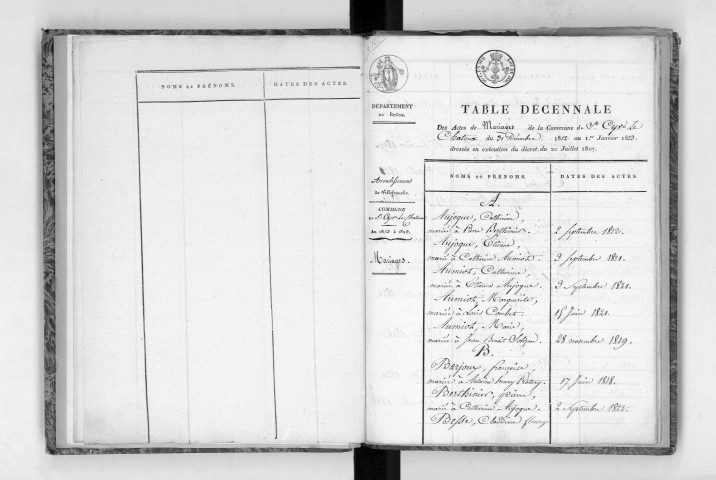 NOMS ET PRÉNOMS.
DATES DES ACTES.
DÉPARTEMENT
DU Rhône.
Arrondissement
de Villefranche.
COMMUNE
de St Cyr le Chatoux
Mariages.
TABLE DÉCENNALE
Des Actes de Mariages de la Commune de St Cyr Le
Chatoux du 31 Décembre 1812 au 1er Janvier 1823.
dressée en exécution du décret du 20 Juillet 1807.
NOMS ET PRÉNOMS.
DATES DES ACTES.
A.
Aujogue, Catherine,
mariée à Pierre Berthinier. 2 Septembre 1822.
Aujogue, Etienne,
marié à Catherine Aumiot. 9 Septembre 1821.
Aumiot, Catherine,
mariée à Etienne Aujogue. 9 Septembre 1821.
Aumiot, Marguerite,
mariée à Louis Combet. 15 Juin 1821.
Aumiot, Marie,
mariée à Jean Benoit 28 novembre 1819.
B.
Barjoux, françoise,
mariée à Antoine 17 Juin 1818.
Berthinier, pierre,
marié à Catherine Aujogue. 2 Septembre 1822.
Besse, Claudine fleury